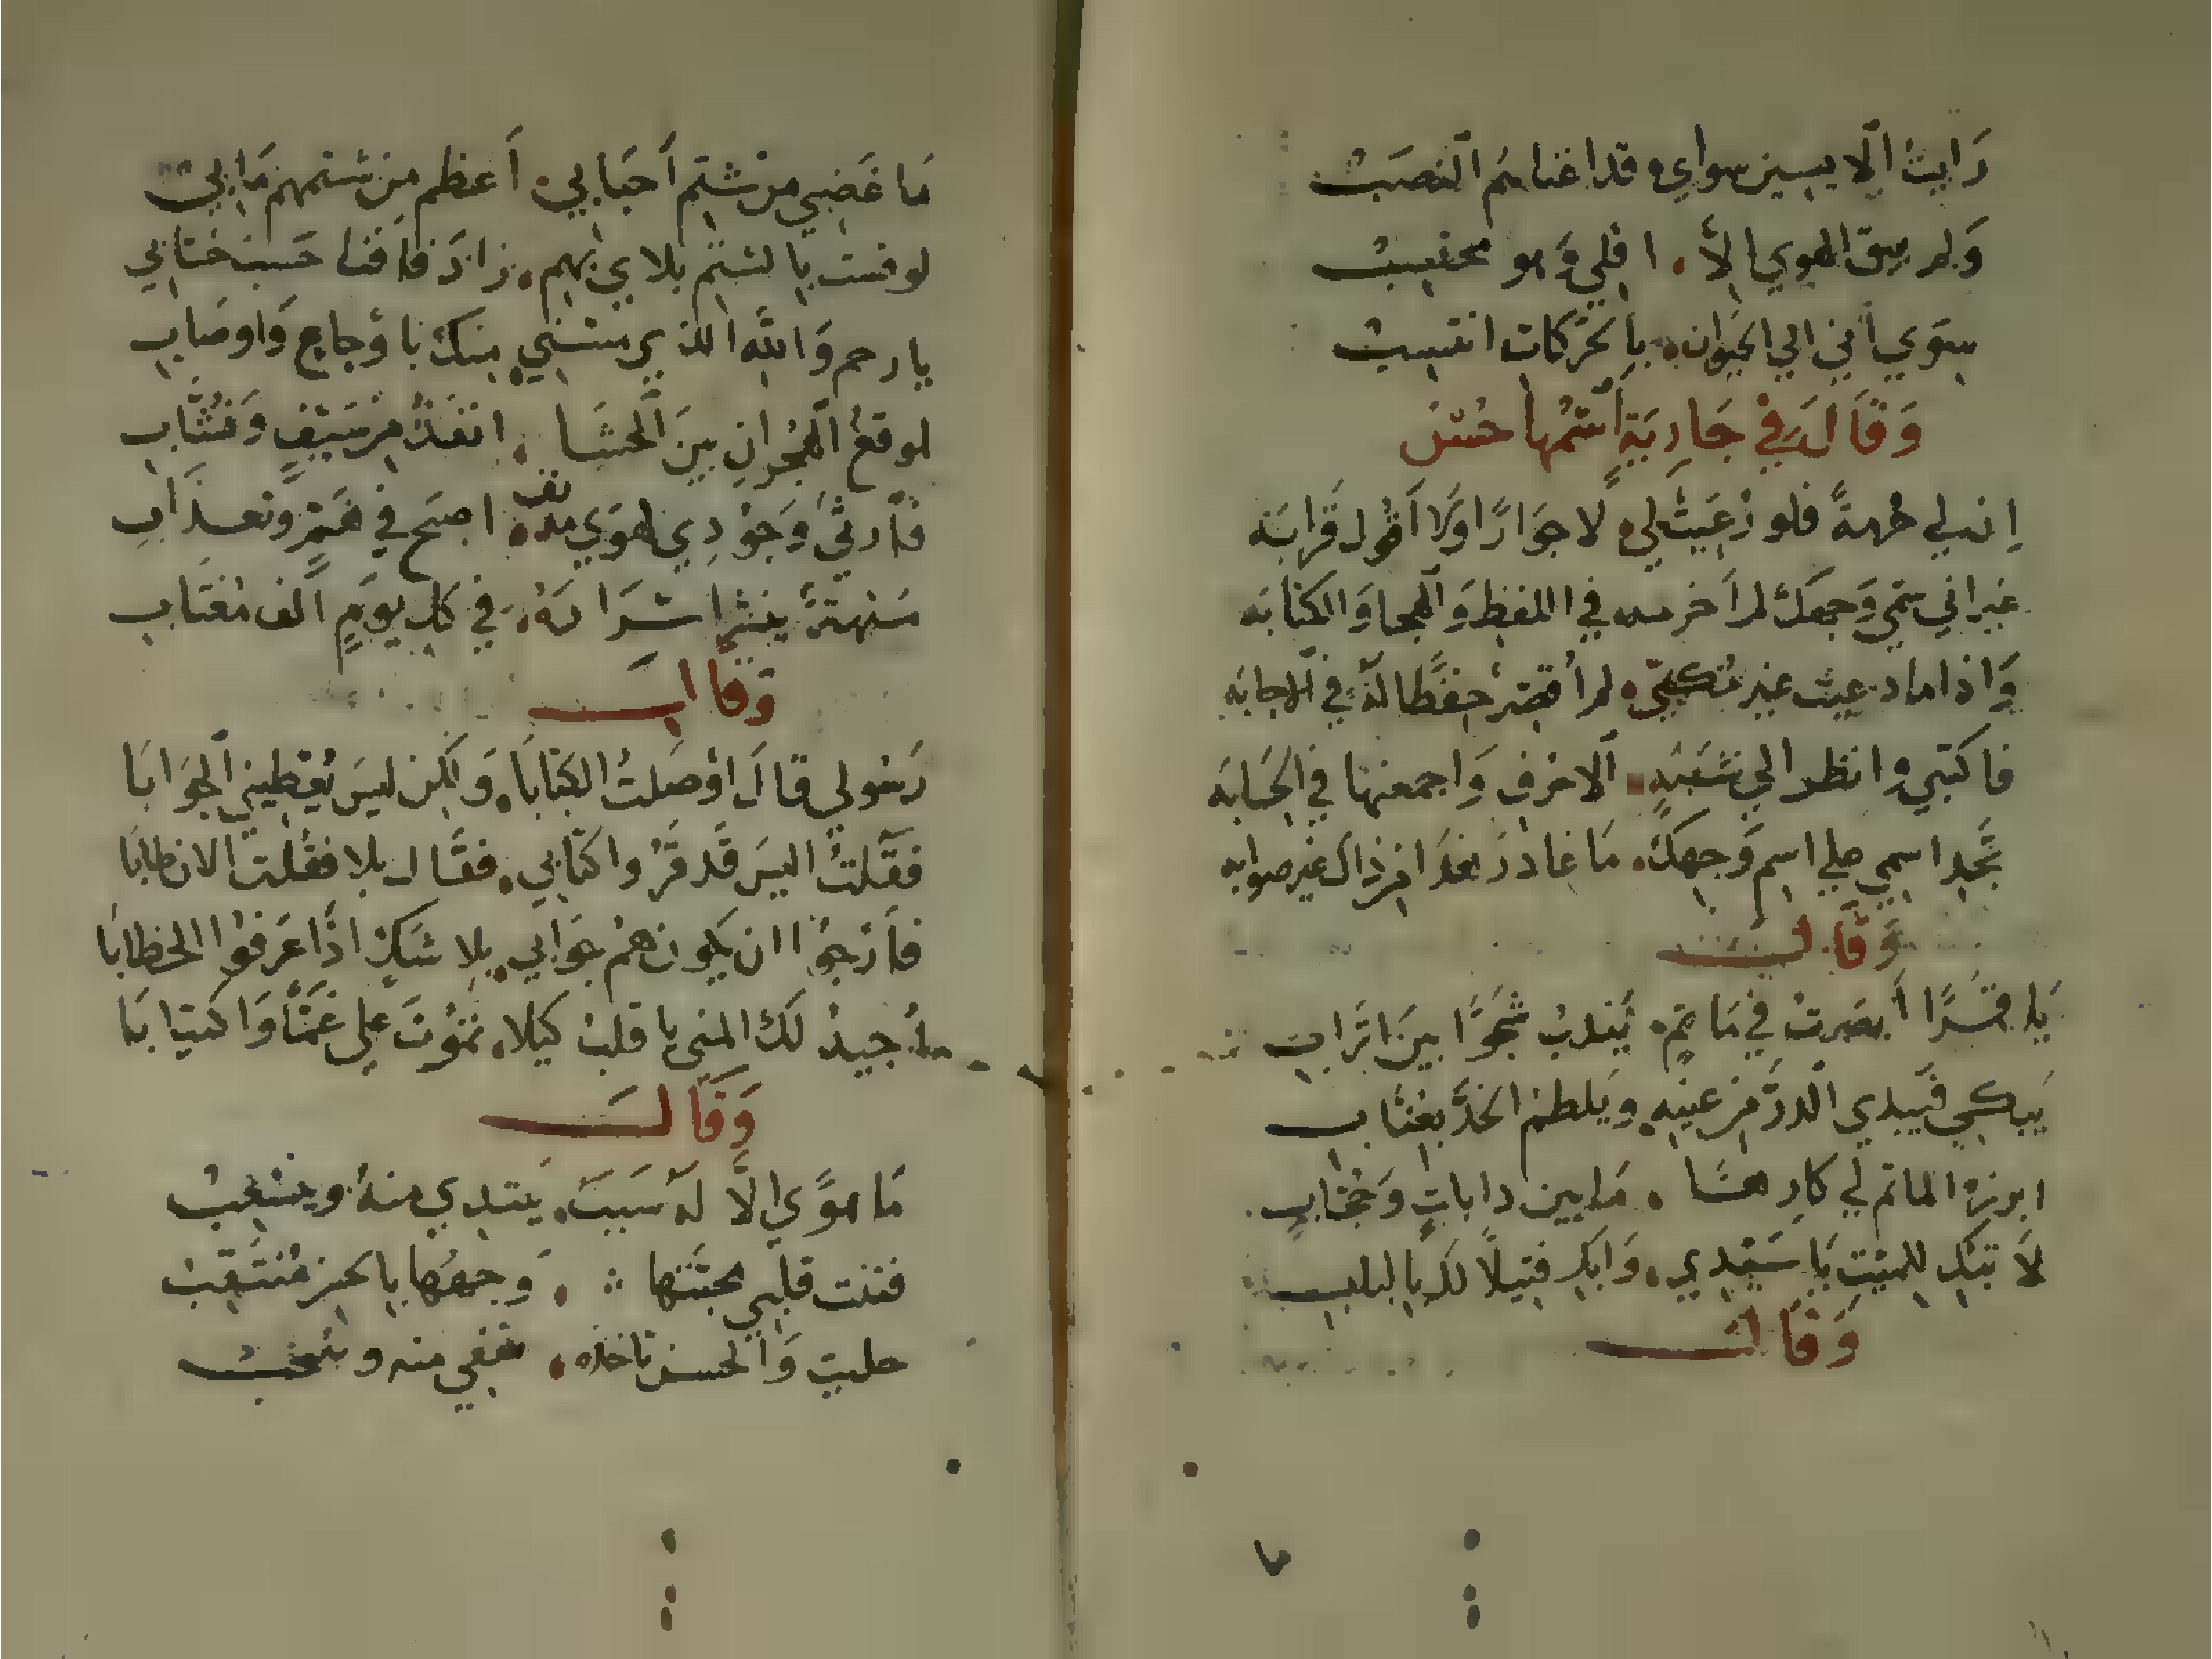 رَايت الايسين سواي قد اغناهم النصب
وَلم يبق الهوي الا اقلي وَهو محتسب
سوي أني الي الحيوان بالحركات انتسب
وَقَالَ في جَارِيَةٍ اسْمُها حُسْن
إن لي حُرمةً فلو رُعيَتْ لي لا جوَارًا وَلا أقول قَرابَه
غير اني سمي وَجهك لم أخر في اللفظ وَالهجا وَالكتابَه
وَاذا ما دعيت غير مُكنّي لم أقصر حفظًا لهُ في الاجابَه
فاكتبي وانظر الي شَبَهِ الاحرف وَاجمعنها في الحسابَه
تَجد اسمي علي اسم وَجهك مَا غادرَ هذا من ذاك غير صوابه
وَقَالَ
يَا قمَرًا أبصَرتُ في مَاتمٍ يَندبُ شَجوًا بينَ اتراب
يَبكي فَيبدي الدرَّ من عينهِ ويَلطم الخدَّ بعُنّاب
ابرزه الماتم لي كارهًا مَا بين داياتٍ وَحُجّابٍ
لَا تَبكِ للميتِ يَا سَيّدي وَابكِ قتيلًا لك بالباب
وَقَالَ
مَا غَضبي من شتم أحبَابي أعظم من شتمهم مَا بي
لو قست بالشتم بلاي بهم زادَ حسب حسَابي
يا رحم وَالله الذي مسّني منك باوجاع وَاوصاب
لوقعُ الهُجرانِ بينَ الحشَا انفذُ من سَيفٍ وَنُشّاب
فارثي وَجودي لهوَي مدنف اصبح في همٍّ وتعذَابِ
في كل يومٍ الف مغتَاب
وَقَال
رَسُولي قالَ اوْصَلتُ الكتابَا وَلكن ليسَ يُعْطيني الجوَابَا
فقُلتُ اليسَ قَد قَرُوا كتابي فقَال بلا فقُلت الان طابَا
فأرجُوا ان يكون هم جوَابي بلا شكٍّ اذا عَرفوا الخطابَا
اجيدُ لك المني يا قلبُ كيلا تمُوتَ علي غمّا وَاكتيابَا
وَقَالَ
مَا هوًي الَّا لهُ سَبَبٌ يَبتدي منهُ وينشعبُ
فتنت قلبي محجبَّتها وَجهُهَا بالحسن مُنتقِبُ
حليت وَالحسن تاخذه تنتقي منه وتنتخبُ